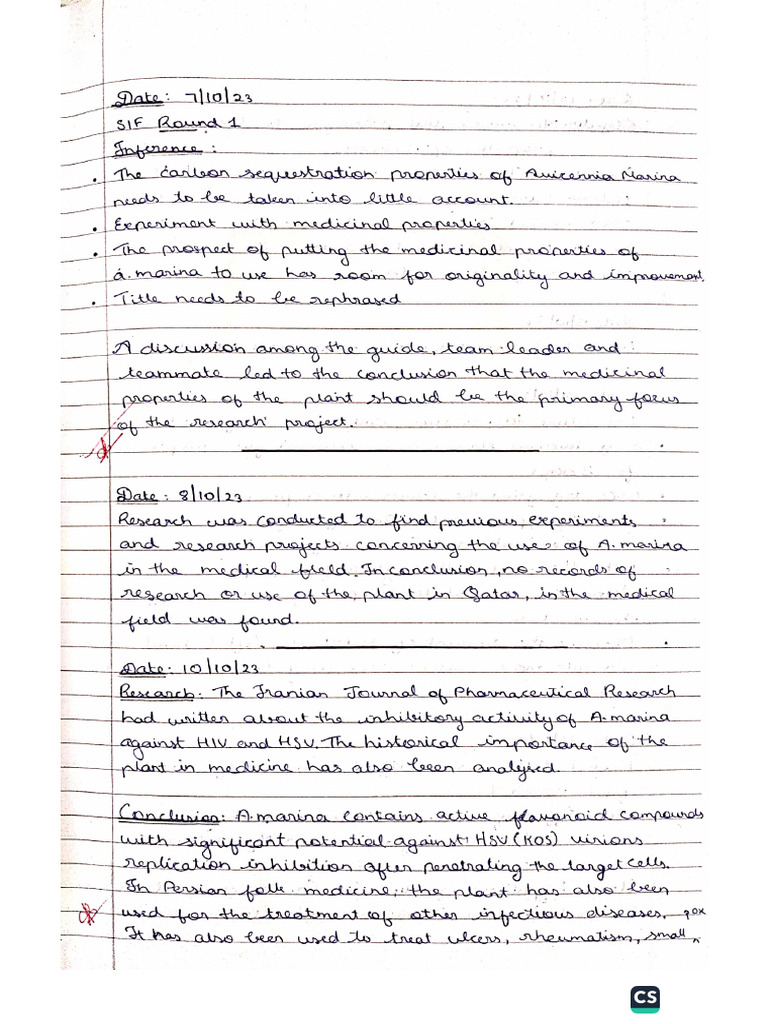 Date: 7/10/23
SIF Round 1
Inference:
• The carbon sequestration properties of Avicennia Marina
needs to be taken into little account.
• Experiment with medicinal properties
• The prospect of putting the medicinal properties of
a.marina to use has room for originality and improvement.
• Title needs to be rephrased
A discussion among the guide, team leader and
teammate led to the conclusion that the medicinal
properties of the plant should be the primary focus
of the research project.
Date: 8/10/23
Research was conducted to find previous experiments
and research projects concerning the use of A.marina
in the medical field. In conclusion, no records of
research or use of the plant in Qatar, in the medical
field was found.
Date: 10/10/23
Research: The Iranian Journal of Pharmaceutical Research
had written about the inhibitory activity of A.marina
against HIV and HSV. The historical importance of the
plant in medicine has also been analysed.
Conclusion: A.marina contains active flavonoid compounds
with significant potential against HSV (KOS) virions
replication inhibition after penetrating the target cells.
In Persian folk medicine, the plant has also been
used for the treatment of other infectious diseases.
It has also been used to treat ulcers, rheumatism, small pox
CS